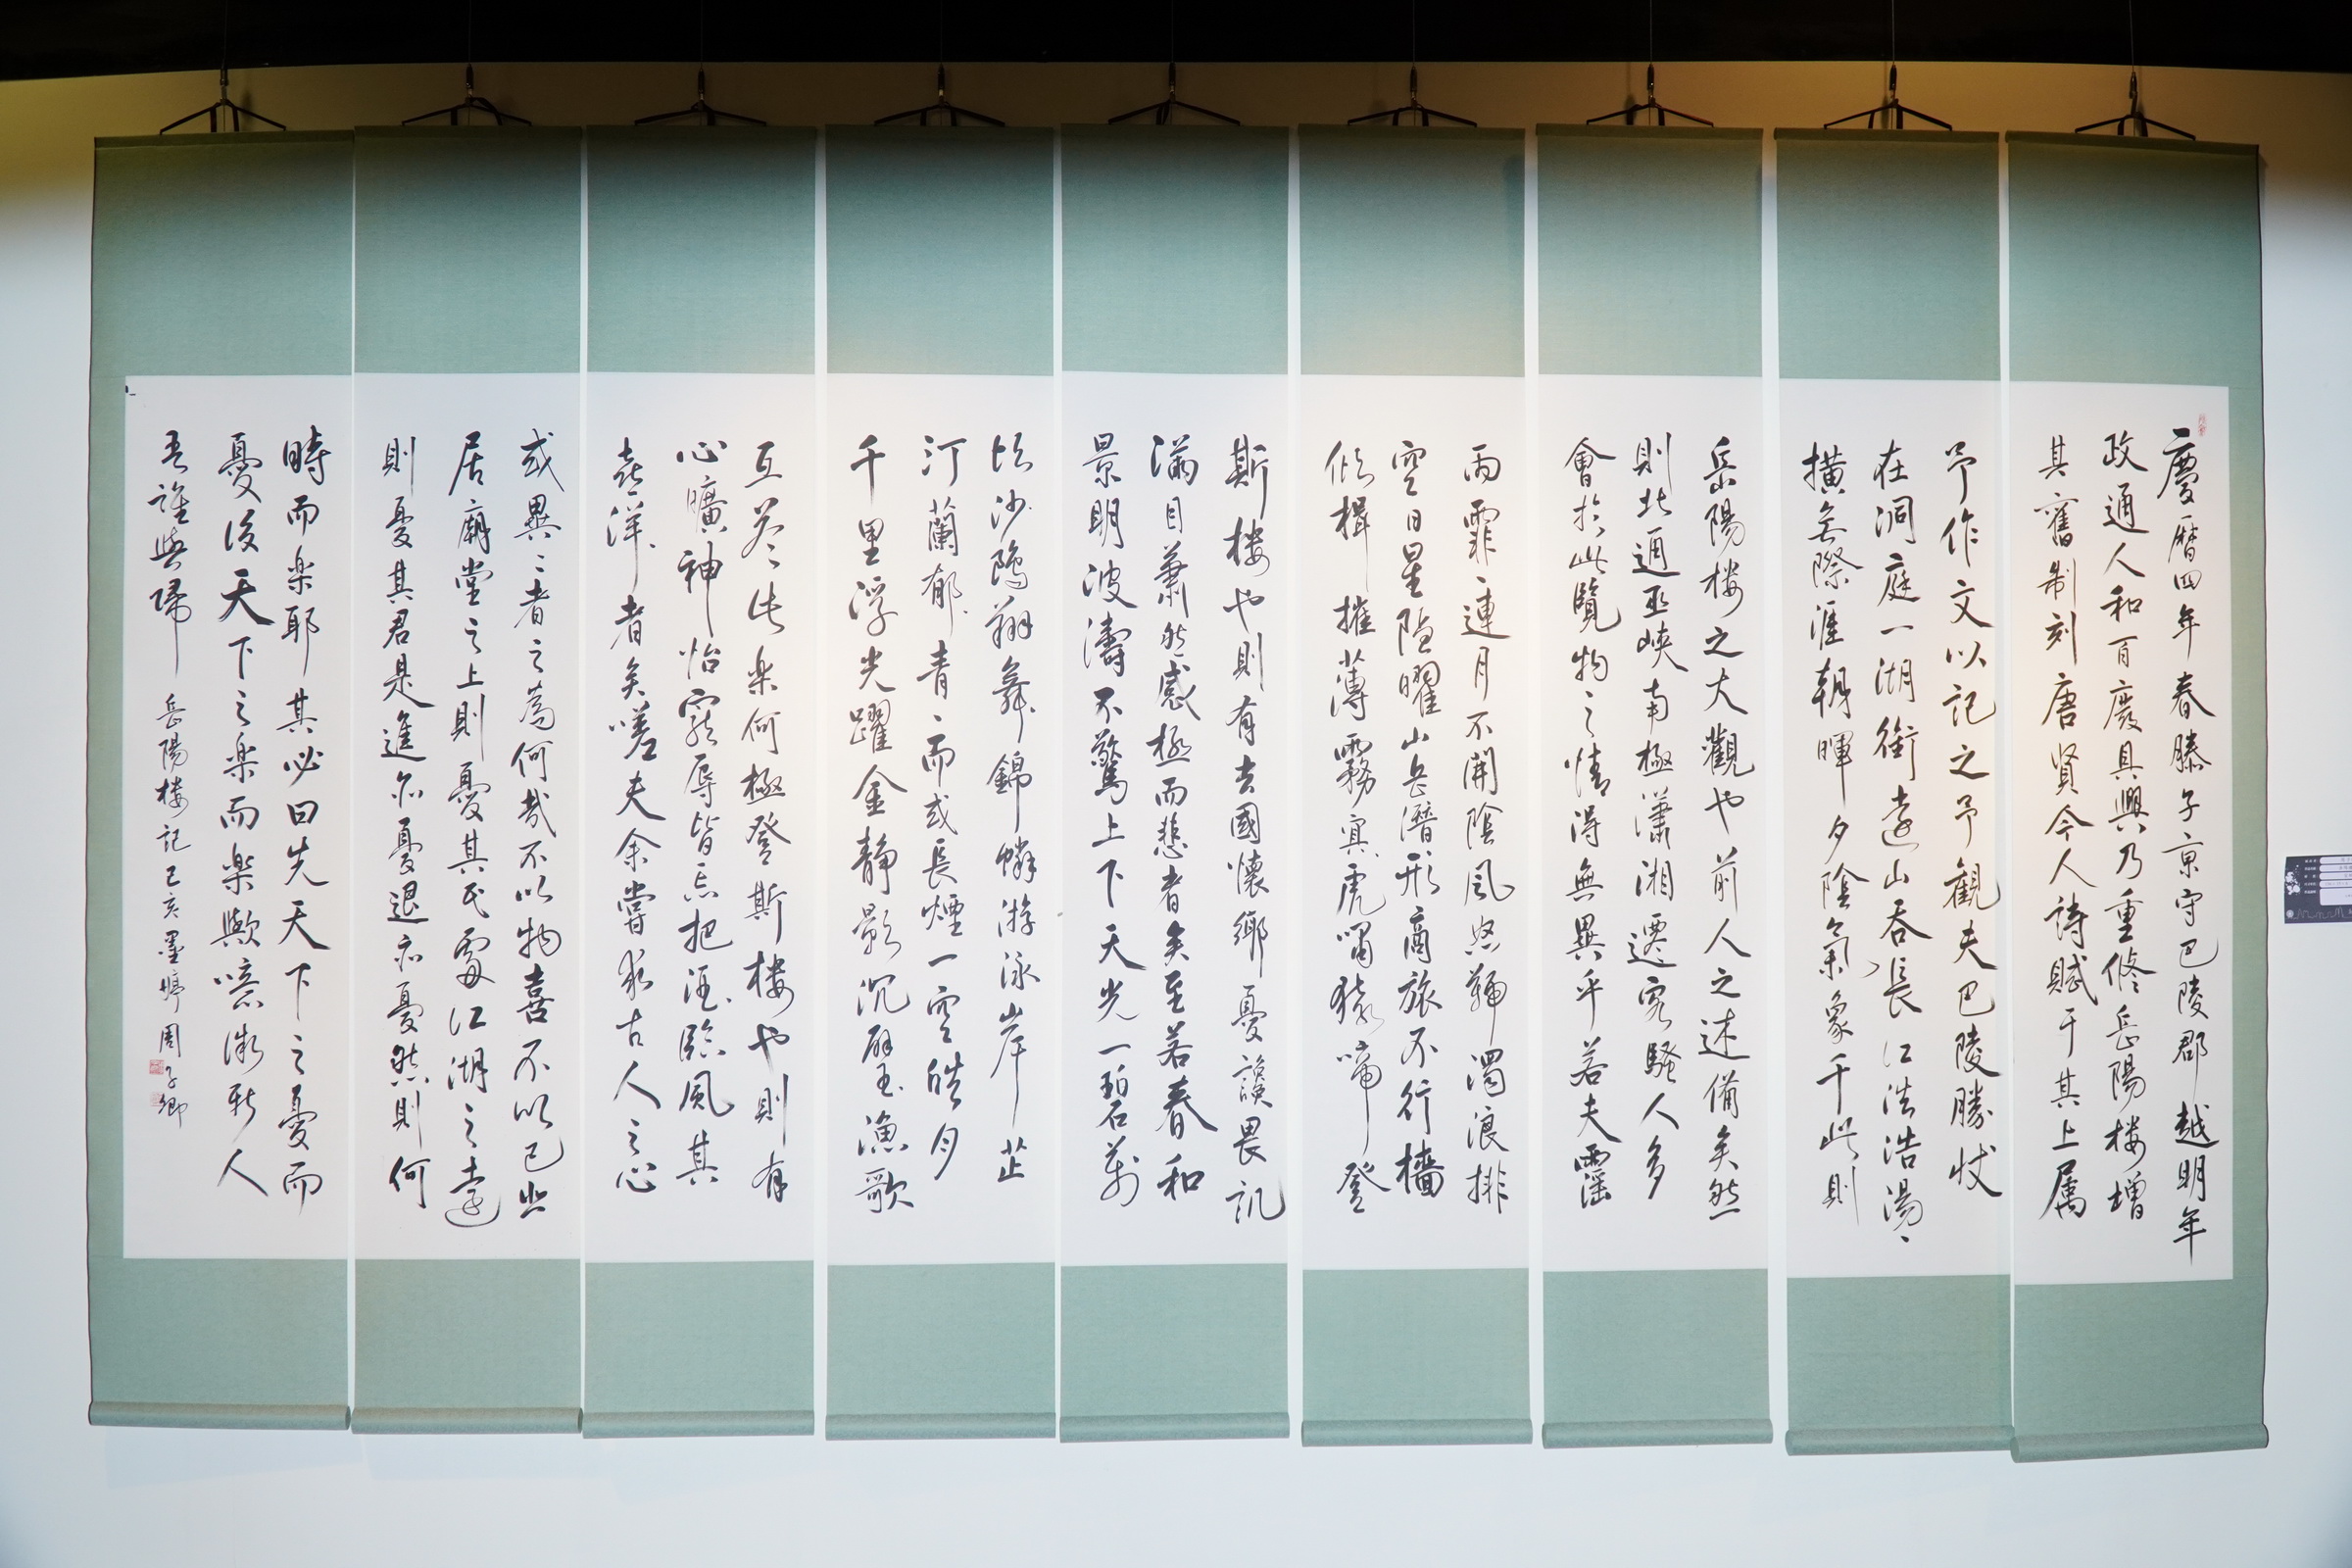 慶曆四年春滕子京守巴陵郡越明年
政通人和百廢具興乃重修岳陽楼增
其舊制刻唐賢今人詩賦于其上属
予作文以記之予觀夫巴陵勝状
在洞庭一湖銜遠山吞長江浩浩湯、
横無際涯朝暉夕陰氣象千此則
岳陽楼之大觀也前人之述備矣然
則北通巫峡南極瀟湘遷客騷人多
會於此覽物之情得無異乎若夫霪
雨霏連月不開陰風怒號濁浪排
空日星隐曜山岳潛形商旅不行檣
傾楫摧薄霧冥虎嘯猿啼登
斯楼也則有去國懷鄉憂讒畏訊
滿目蕭然感極而悲者矣至若春和
景明波濤不驚上下天光一碧萬
頃沙鴎翔舞錦鱗游泳岸芷
汀蘭郁、青、而或長煙一空皓月
千里浮光躍金静影沉壁玉漁歌
互答此楽何極登斯楼也則有
心曠神怡寵辱皆忘把酒臨風其
喜洋、者矣嗟夫余嘗求古人之心
或異二者之為何哉不以物喜不以己悲
居廟堂之上則憂其民處江湖之遠
則憂其君是進亦憂退亦憂然則何
時而楽耶其必曰先天下之憂而
憂後天下之楽而楽歟噫微斯人
吾誰與歸 岳陽楼記己亥墨婷周子卿